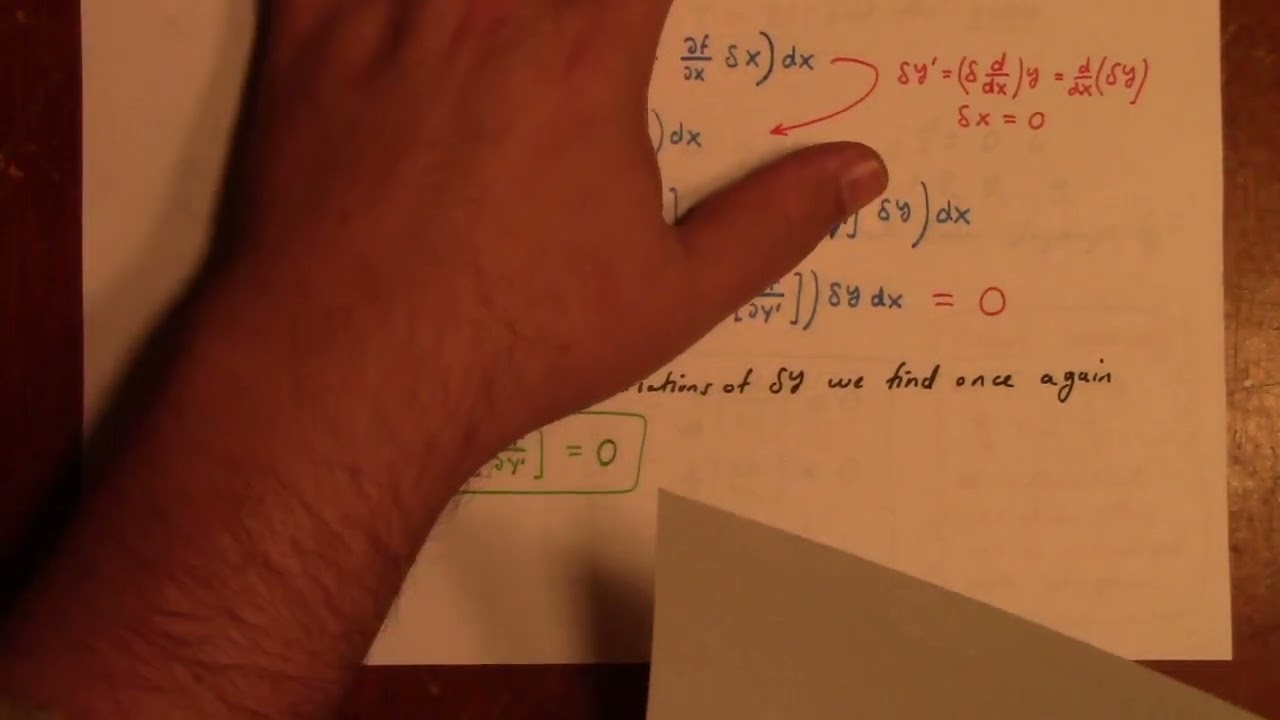 ∂f/∂x δx) dx
δy' = (δ d/dx) y = d/dx (δy)
δx = 0
) dx
] ] δy) dx
∂y' ]) δy dx = 0
of δy we find once again
∂y' ] = 0